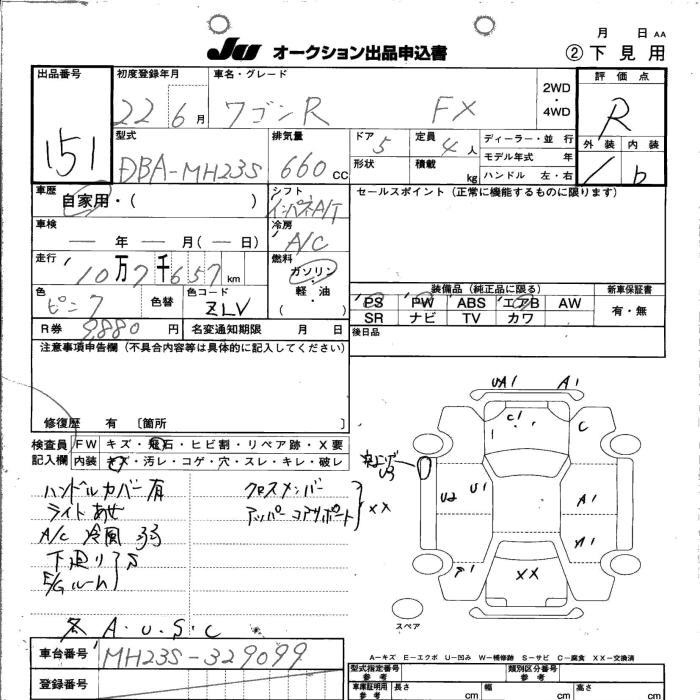 月 日 AA
JU オークション出品申込書 ② 下見用
出品番号 151
初度登録年月 22 6月
車名・グレード ワゴンR FX
2WD・4WD
評価点 R
外装 内装 b
型式 DBA-MH23S
排気量 660 CC
ドア 5 定員 4人
形状 積載 kg
ディーラー・並行
モデル年式 年
ハンドル 左・右
車歴 自家用・( )
シフト インパネA/T
セールスポイント (正常に機能するものに限ります)
車検 ― 年 ― 月(― 日)
冷房 A/C
走行 10万7千657km
燃料 ガソリン・軽・油 ( )
色 ピンク 色替 色コード ZLV
装備品(純正品に限る) 新車保証書
PS PW ABS エアB AW 有・無
SR ナビ TV カワ
R券 9,880円 名変通知期限 月 日
後日品
注意事項申告欄 (不具合内容等は具体的に記入してください)
修復歴 有 〔箇所 〕
検査員記入欄
FW キズ・飛石・ヒビ割・リペア跡・X要
内装 キズ・汚レ・コゲ・穴・スレ・キレ・破レ
UA1 A1
C1 C
U3
U2 U1 A1
A1
XX
スペア
ハンドルカバー有
ライトあせ
A/C 冷風弱
下廻り
E/Gルーム
サ
クロスメンバー
アッパーコアサポート
XX
A・U・S・C
A―キズ E―エクボ U―凹み W―補修跡 S―サビ C―腐食 XX―交換済
車台番号 MH23S-329099
登録番号
型式指定番号 参考 類別区分番号 参考
車庫証明用 参考 長さ cm 幅 cm 高さ cm